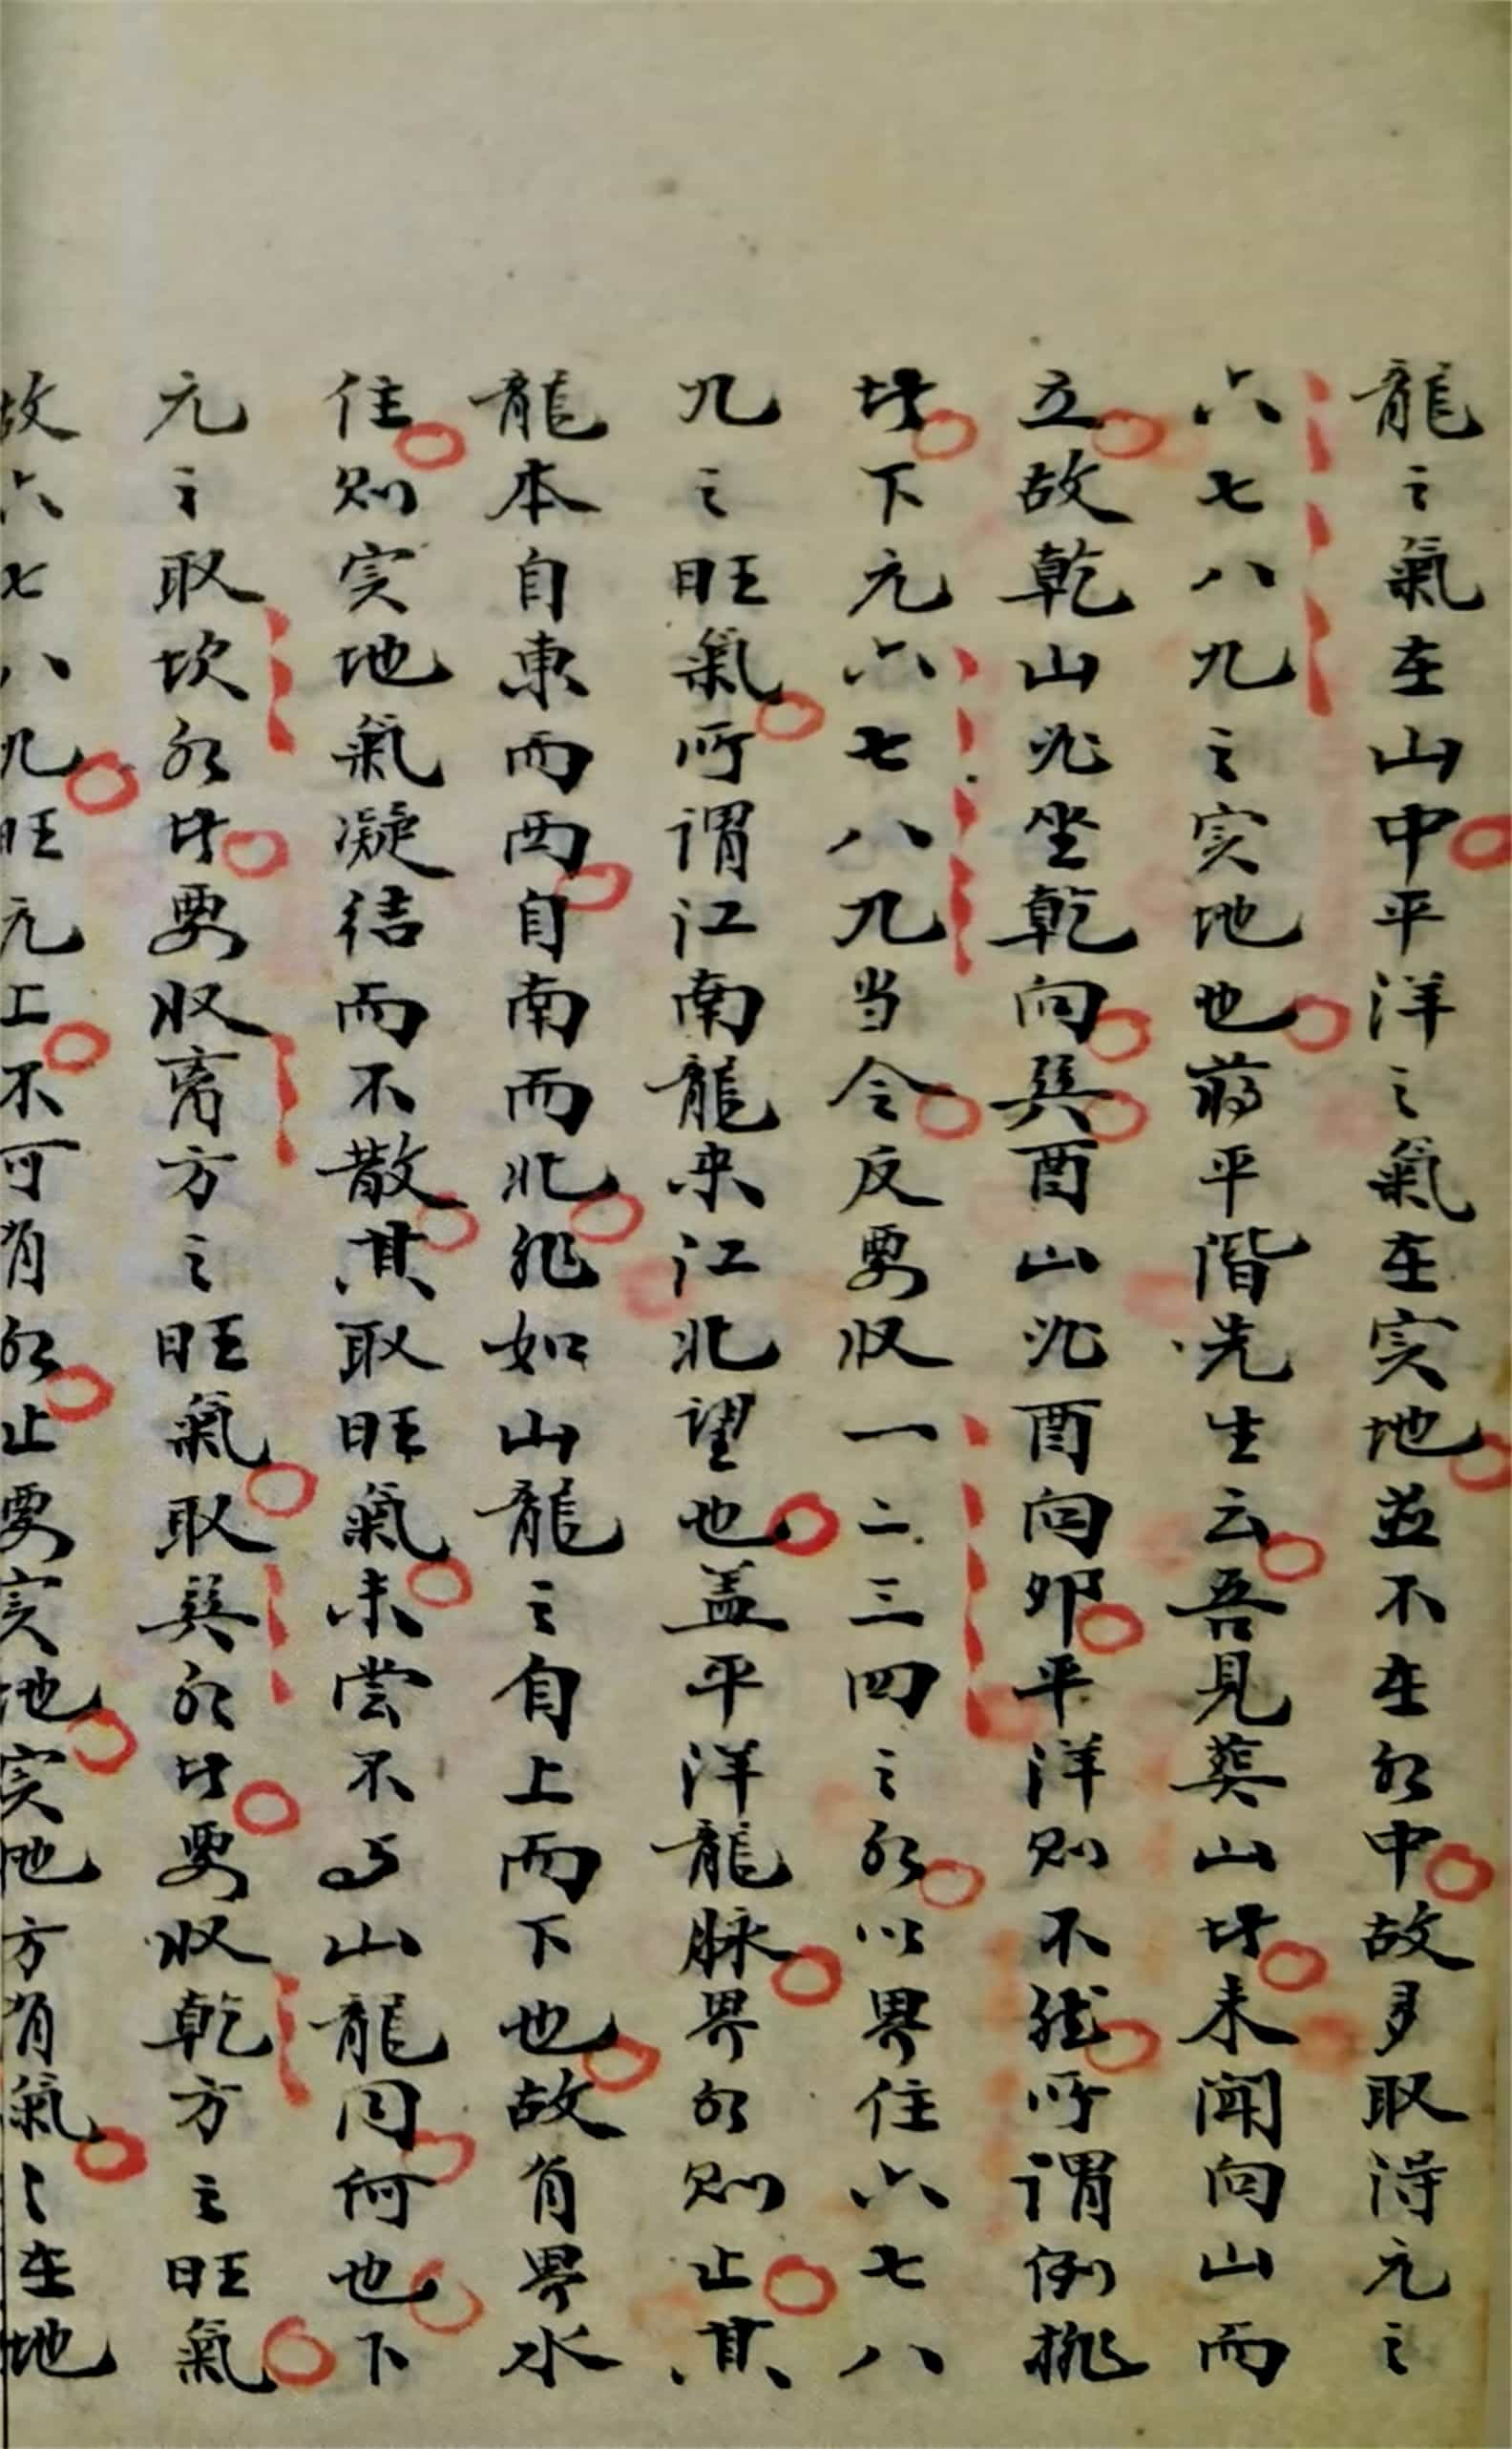 龍之氣在山中平洋之氣在实地並不在水中故多取得元之
六七八九之实地也蔣平階先生云吾見葬山坟未闻向山而
立故乾山必坐乾向巽酉山必酉向卯平洋则不然所謂倒排
坟下元六七八九当令反要收一二三四之水以界住六七八
九之旺氣所謂江南龍来江北望也盖平洋龍脉界水则止其
龍本自東而西自南而北非如山龍之自上而下也故有界水
住则实地氣凝结而不散其取旺氣未尝不与山龍同何也下
元之取坎水者要收离方之旺氣取巽水者要收乾方之旺氣
故六七八九旺元上不可有水止要实地实地方有氣之在地